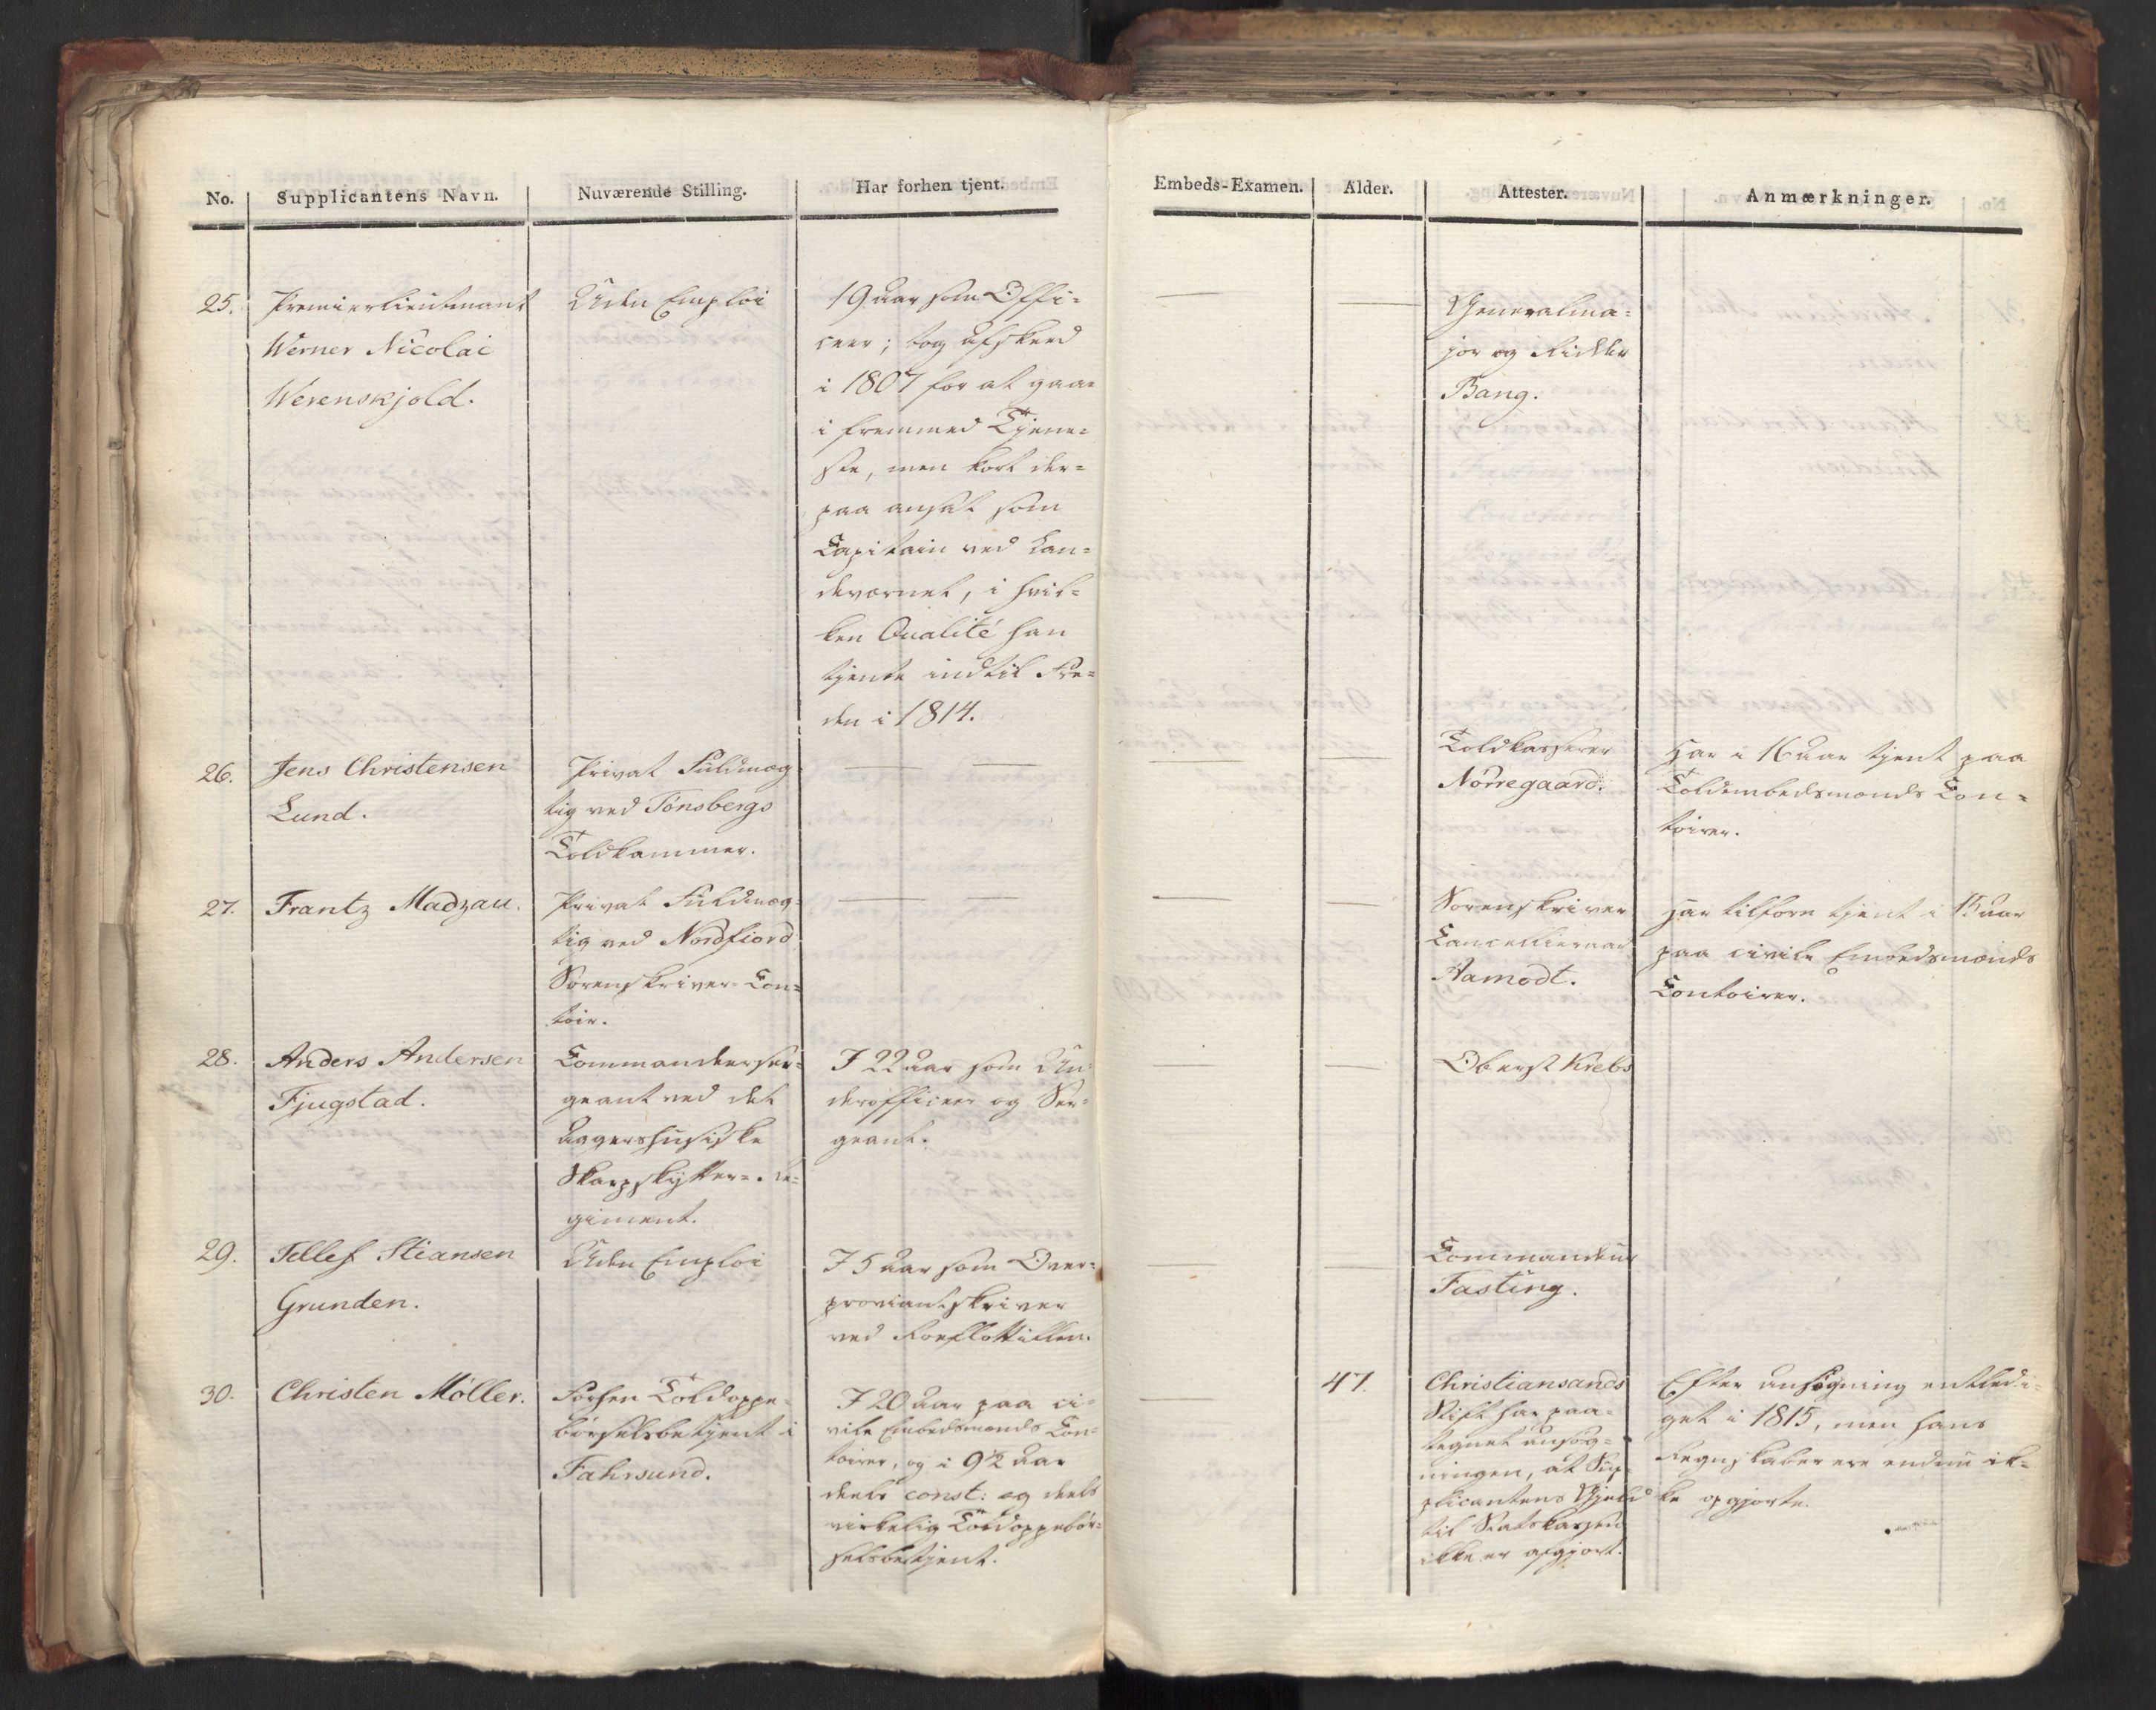 No.
Supplicantens Navn.
Nuværende Stilling.
Har forhen tjent.
Embeds-Examen.
Alder.
Attester.
Anmærkninger.
25.
Premierlieutenant
Werner Nicolai
Werenskjold.
Uden Emploi
19 Aar som Offi-
ceer; tog Afskeed
i 1807 for at gaae
i fremmed Tjene-
ste, men kort der-
paa ansat som
Capitain ved Lan-
deværnet, i hvil-
ken Qualité han
tjente indtil Fre-
den i 1814.
Generalma-
jor og Ridder
Bang.
26.
Jens Christensen
Lund.
Privat Fuldmæg-
tig ved Tönsbergs
Toldkammer.
Toldkasserer
Nörregaard.
Har i 16 Aar tjent paa
Toldembedsmænds Con-
toirer.
27.
Frantz Madzau.
Privat Fuldmæg-
tig ved Nordfiord
Sorenskriver-Con-
toir.
Sorenskriver
Cancellieraad
Aamodt.
Har tilforn tjent i 15 Aar
paa civile Embedsmænds
Contoirer.
28.
Anders Andersen
Fjugstad.
Commandeerser-
geant ved det
Aggershusiske
Skarpskytter-Re-
giment.
I 22 Aar som Un-
derofficeer og Ser-
geant.
Oberst Krebs
29.
Tellef Stiansen
Grunden.
Uden Emploi
I 5 Aar som Over-
proviantskriver
ved Roeflottillen.
Commandeur
Fasting.
30.
Christen Möller.
Forhen Toldoppe-
börselsbetjent i
Fahrsund.
I 20 Aar paa ci-
vile Embedsmænds Con-
toirer, og i 9½ Aar
deels const: og deels
virkelig Toldoppebör-
selsbetjent.
47.
Christiansands
Stift har paa-
tegnet Ansög-
ningen, at Sup-
plicantens Gjeld
til Statskassen
ikke er afgjort.
Efter Ansögning entledi-
get i 1815, men hans
Regnskaber ere endnu ik-
ke opgjorte.